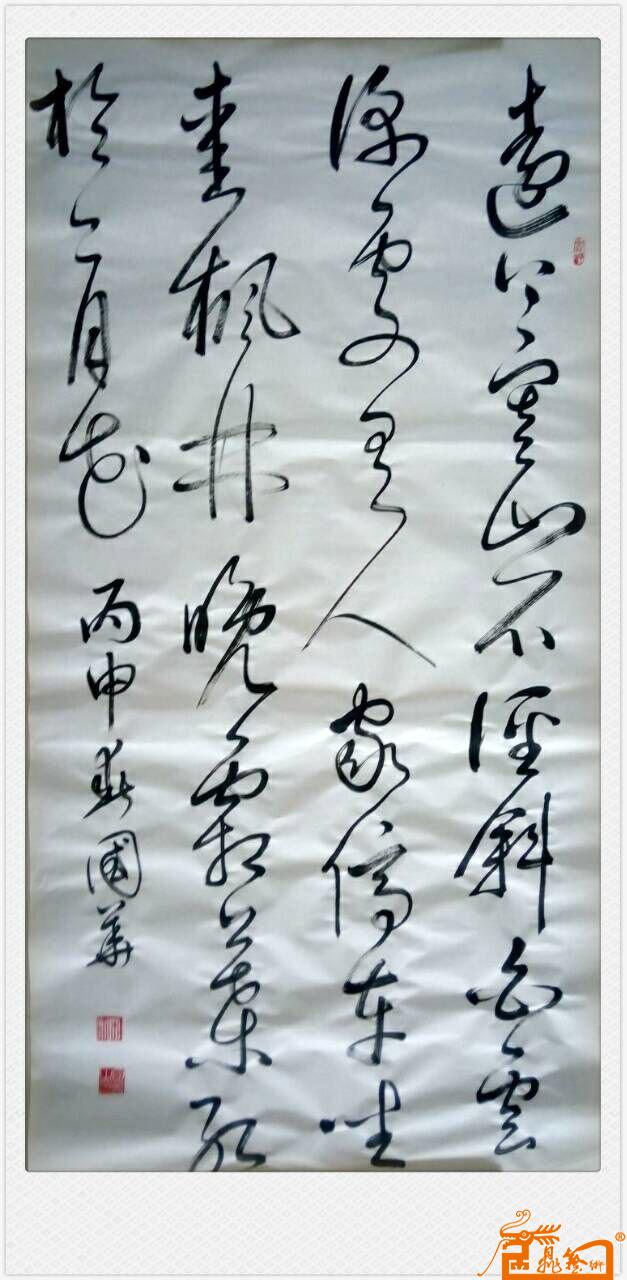 遠上寒山石徑斜白雲
深處有人家停車坐
愛楓林晚霜葉紅
於二月花 丙申春國華